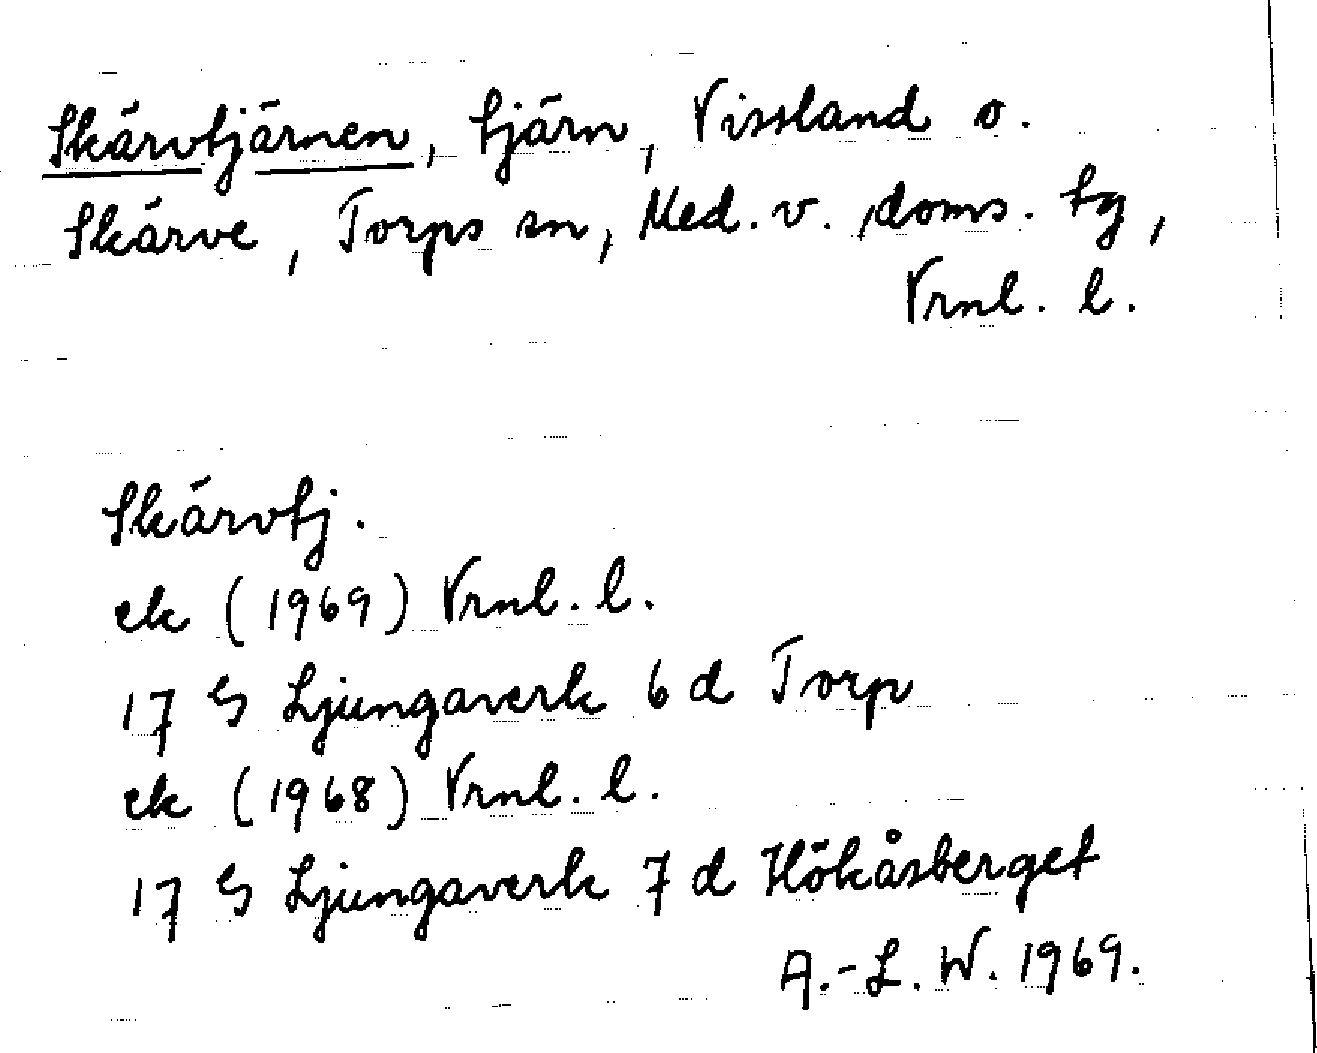 Skärvtjärnen, tjärn, Vissland o.
Skärve, Torps sn, Med. v. doms. tg,
Vrnl. l.
Skärvtj.
ek (1969) Vrnl. l.
17 G Ljungaverk 6 d Torp
ek (1968) Vrnl. l.
17 G Ljungaverk 7 d Hökåsberget
A.-L. W. 1969.